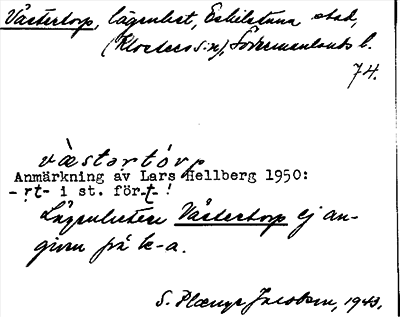 Västertorp, lägenhet, Eskilstuna stad,
(Klosters s:n), Södermanlands l.
74.
væ̀stɑrtórp
Anmärkning av Lars Hellberg 1950:
-ṛt- i st. för -t- !
Lägenheten Västertorp ej an-
given på k-a.
S. Jacobson, 1943.